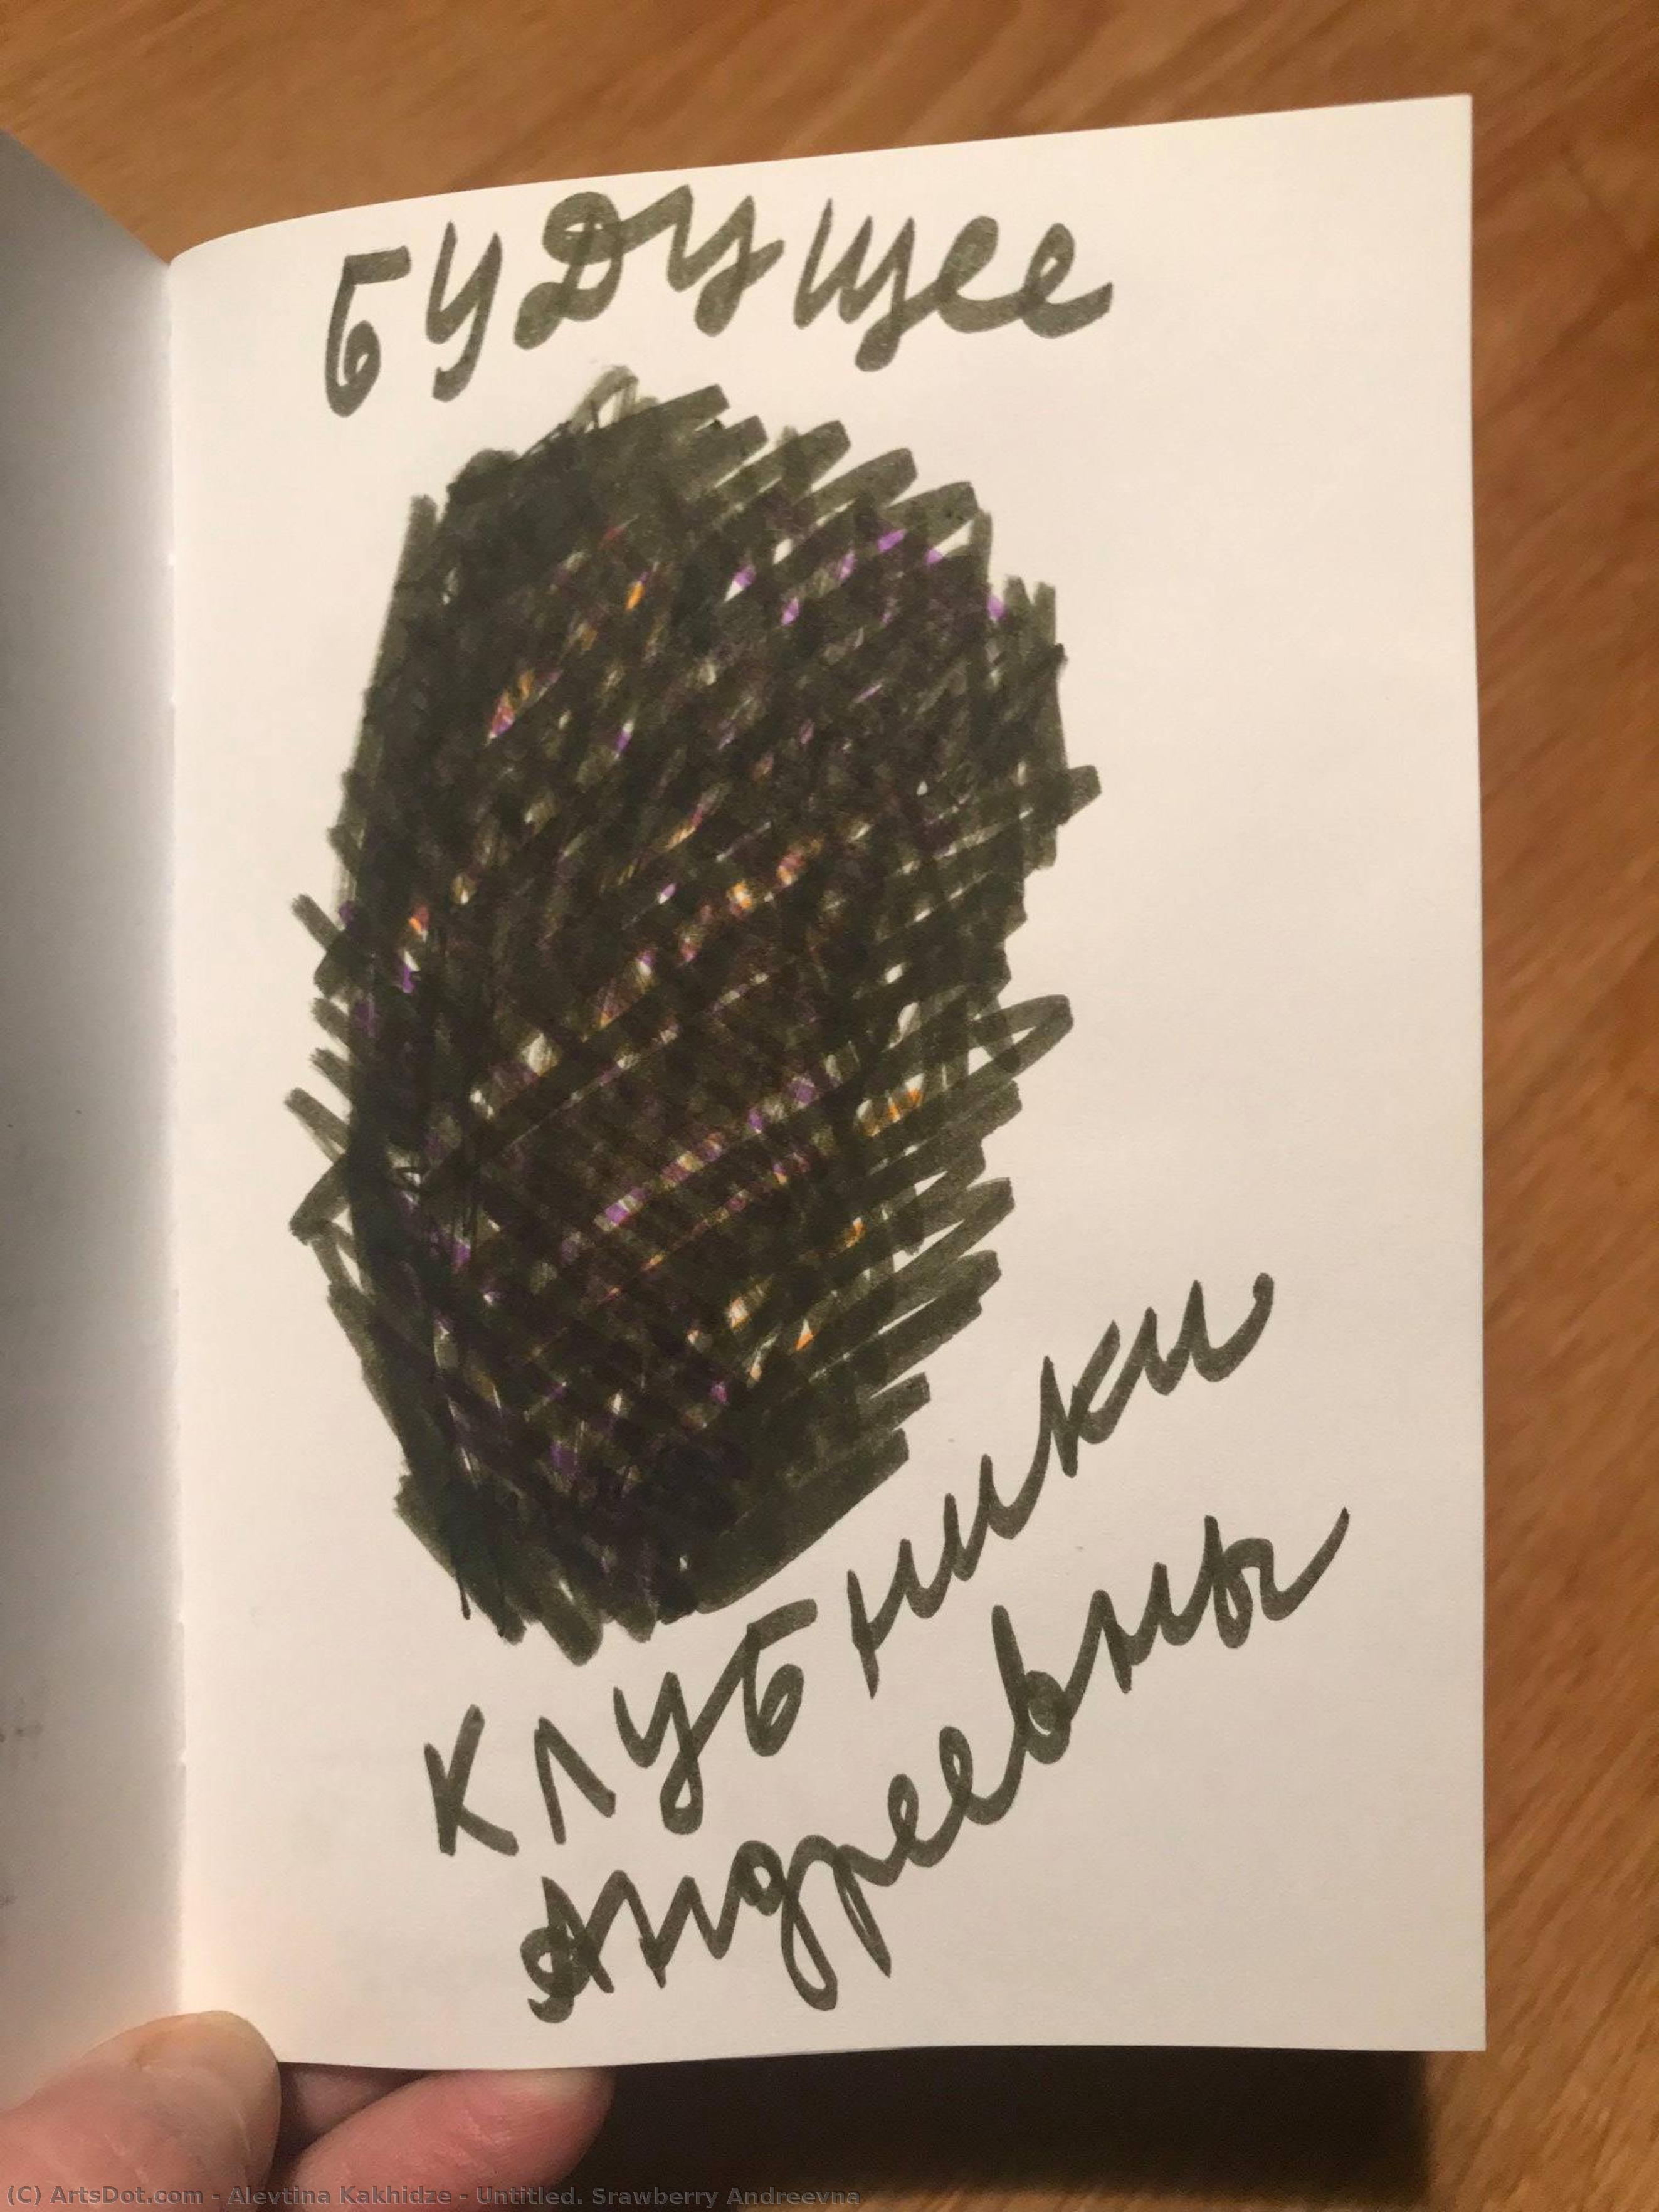 Будущее
Клубники
Андреевны
(C) ArtsDot.com - Alevtina Kakhidze - Untitled. Srawberry Andreevna